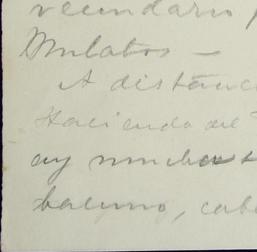 vecindario
Mulatos —
A distanc
Hacienda del
ay muchas
bacuno, cab